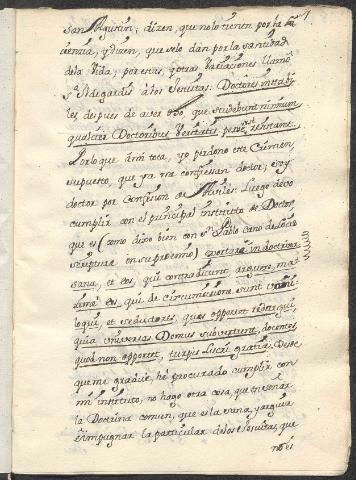 San Agustin; dizen, que no lo tienen por la
ciencia, y dizen, que selo dan por la santidad
dela Vida; por estas, y otras Variaciones llamò
Sª Ildegardis à los Jesuitas: Doctores instabi
les, despues de aver dho, que studebunt nimium
Doctoribus Veritatis resistant.
Por lo que à mi toca, yo perdono este Crimen,
supuesto, que ya me confiessan doctor, soy
doctor por Confession de Luego devo
cumplir con el principal instituto de Doctor,
que es (como dixo bien con Sn Pablo Cano de Locis
scriptura in supremmo) Doctrina
sana, et eos, qui contradicunt, arguere, ma
xime eos, qui de circumcisione sunt vani
loqui, et seductores, quos opportet redargui,
quia universas Domus subvertunt, docentes
quod non opportet, turpis Lucri gratia. Desde
que me graduè, hè procurado cumplir con
mi instituto; no hago otra cosa, que enseñar
la Doctrina comun, que es la sana, y arguir
è impugnar la particular delos Jesuitas, que
no es